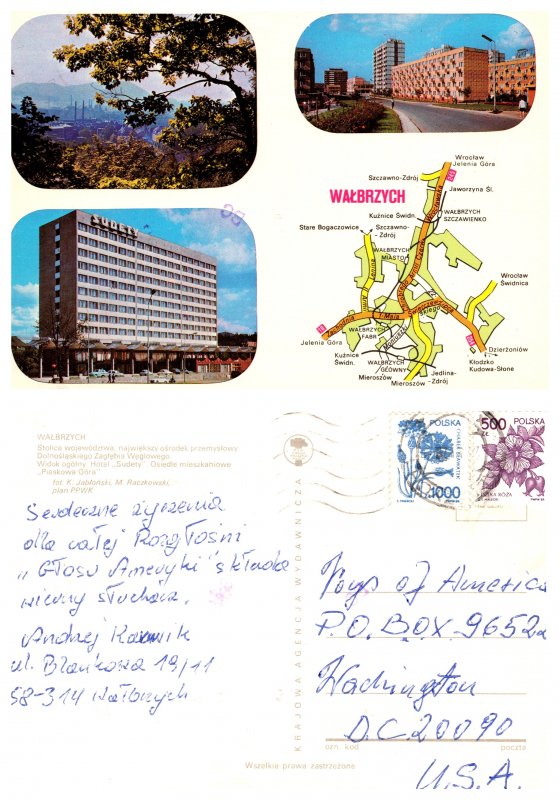 SUDETY
WAŁBRZYCH
Wrocław
Jelenia Góra
Szczawno-Zdrój
Jaworzyna Śl.
Kuźnice Świdn.
WAŁBRZYCH
SZCZAWIENKO
Stare Bogaczowice
Szczawno-
Zdrój
WAŁBRZYCH
MIASTO
Wrocław
Świdnica
1 Maja
Jelenia Góra
WAŁBRZYCH
FABR.
Dzierżoniów
Kuźnice
Świdn.
WAŁBRZYCH
GŁÓWNY
Jedlina-
Zdrój
Kłodzko
Kudowa-Słone
Mieroszów
Mieroszów
WAŁBRZYCH
Stolica województwa, największy ośrodek przemysłowy
Dolnośląskiego Zagłębia Węglowego
Widok ogólny Hotel „Sudety" Osiedle mieszkaniowe
„Piaskowa Góra"
fot. K. Jabłoński, M. Raczkowski,
plan PPWK
Serdeczne życzenia
dla całej Rozgłośni
„Głosu Ameryki" składa
wierny słuchacz.
Andrzej
ul. Blankowa 19/11
58-314 Wałbrzych
KRAJOWA AGENCJA WYDAWNICZA
POLSKA
CHABER BŁAWATEK
1000
500
ZŁ
POLSKA
DZIKA RÓŻA
Voys of America
P.O. BOX 9652a
Wachington
D.C. 20090
U.S.A.
ozn. kod
poczta
Wszelkie prawa zastrzeżone